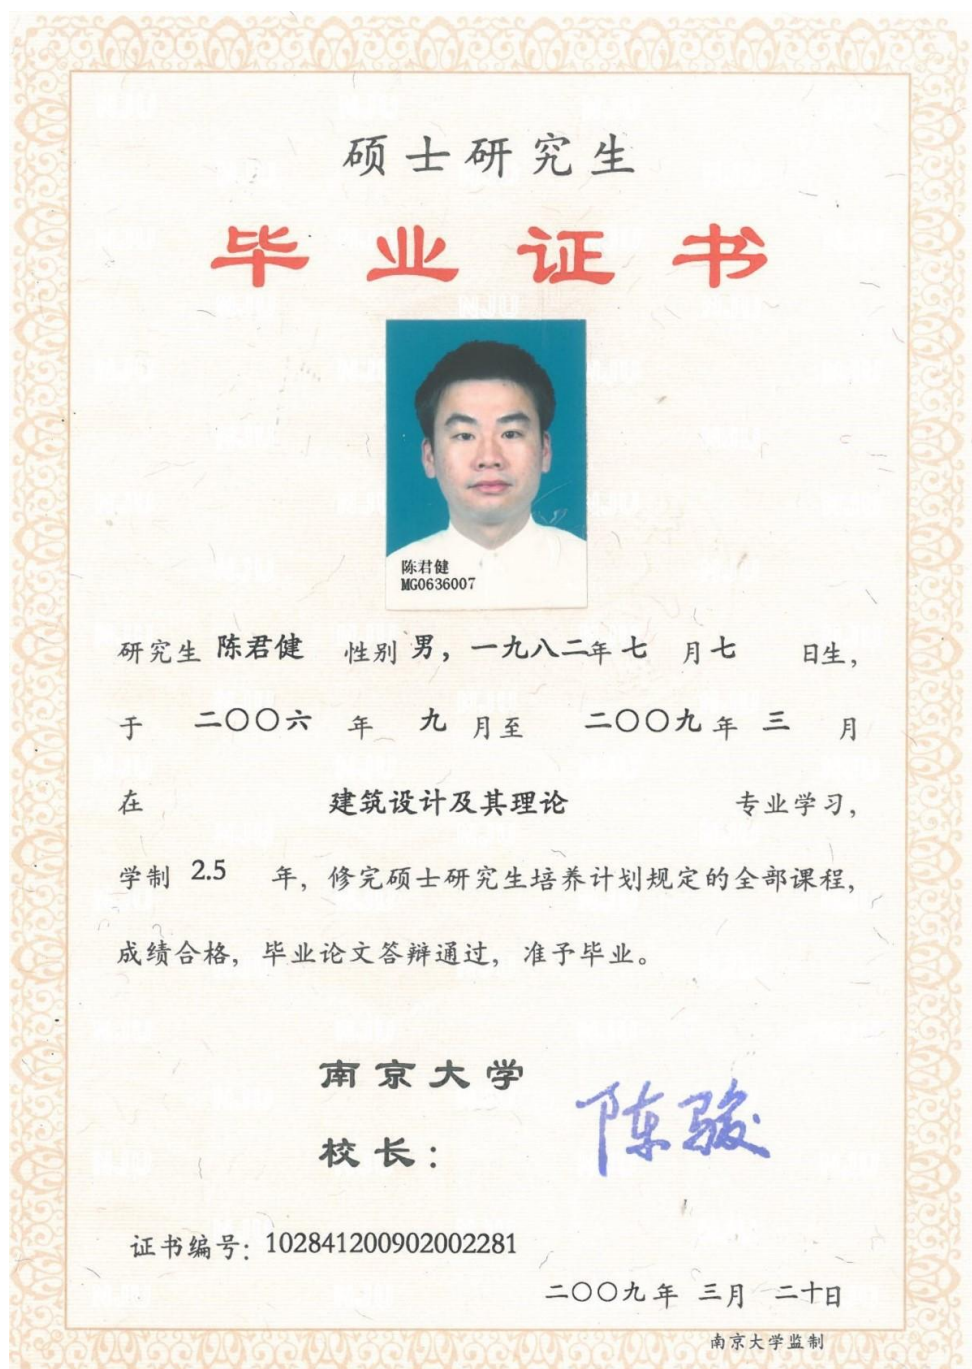 硕士研究生
毕业证书
陈君健
MG0636007
研究生 陈君健 性别 男，一九八二年 七 月 七 日生，
于 二〇〇六 年 九 月至 二〇〇九 年 三 月
在 建筑设计及其理论 专业学习，
学制 2.5 年，修完硕士研究生培养计划规定的全部课程，
成绩合格，毕业论文答辩通过，准予毕业。
南京大学
校长： 陈骏
证书编号：102841200902002281
二〇〇九年 三月 二十日
南京大学监制